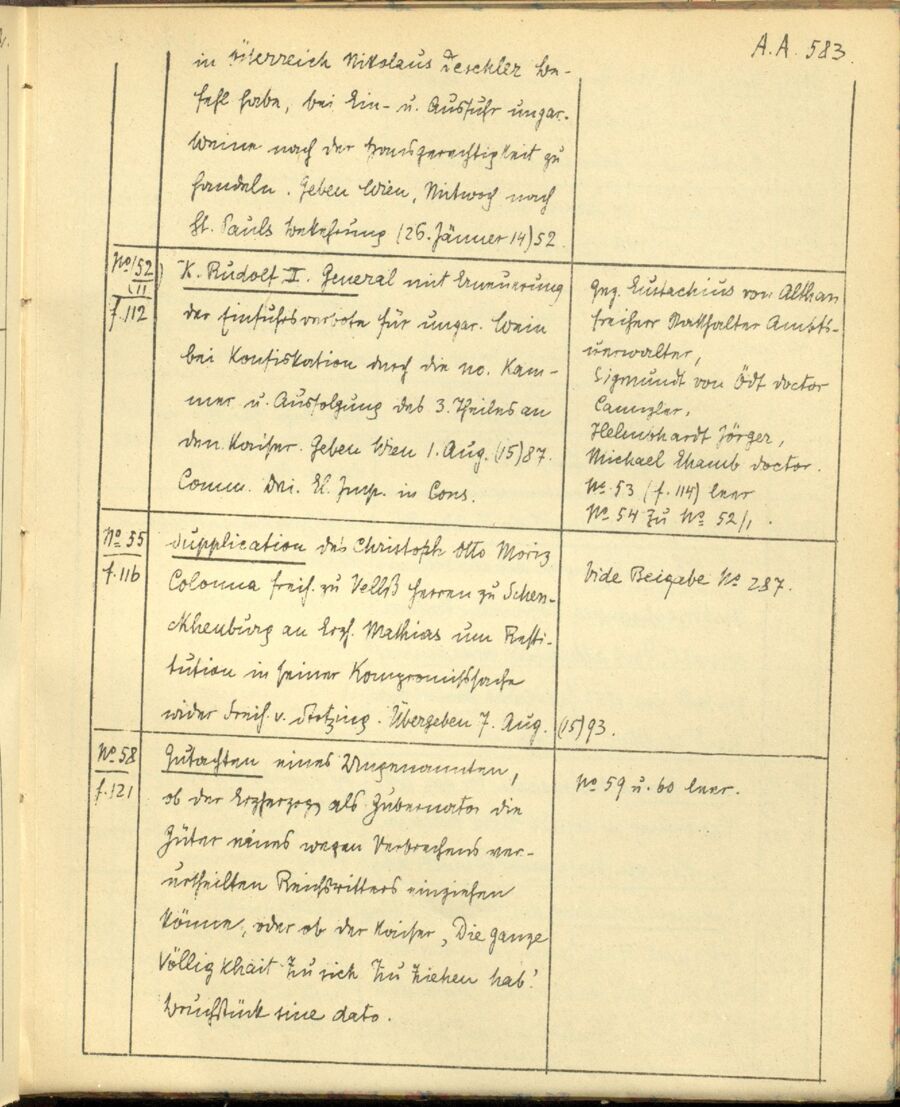 A. A. 583.
in Österreich Nikolaus Teschler be-
fehl habe, bei Ein- u. Ausfuhr ungar.
Weine nach der Hansgerechtigkeit zu
handeln. Geben Wien, Mitwoch nach
St. Pauls Bekehrung (26. Jänner 14)52.
No 152
/II
f. 112
K. Rudolf II. General mit Erneuerung
der Einfuhrsverbote für ungar. Wein
bei Konfiskation durch die nö. Kam-
mer u. Ausfolgung des 3. Theiles an
den Kaiser. Geben Wien 1. Aug. (15)87.
Comm. Dni. El. Imp. in Cons.
Gez. Eustachius von Althan
freiherr Stathalter Ambts-
verwalter,
Sigmundt von Ödt doctor
Canntzler,
Helmbhardt Jörger,
Michael Chamb doctor.
No 53 (f. 114) leer
No 54 zu No 52/1.
No 55
f. 116
Supplication des Christoph Otto Moriz
Colonna freih. zu Vellß herren zu Schen-
ckhenburg an Erzh. Mathias um Resti-
tution in seiner Kompromißsache
wider Freih. v. Stotzing. Übergeben 7. Aug. (15)93.
Vide Beigabe No 287.
No 58
f. 121
Gutachten eines Ungenannten,
ob der Erzherzog als Gubernator die
Güter eines wegen Verbrechens ver-
urtheilten Reichsritters einziehen
könne, oder ob der Kaiser „Die ganze
Völligkhait zu sich zu ziehen hab.“
Bruchstück sine dato.
No 59 u. 60 leer.